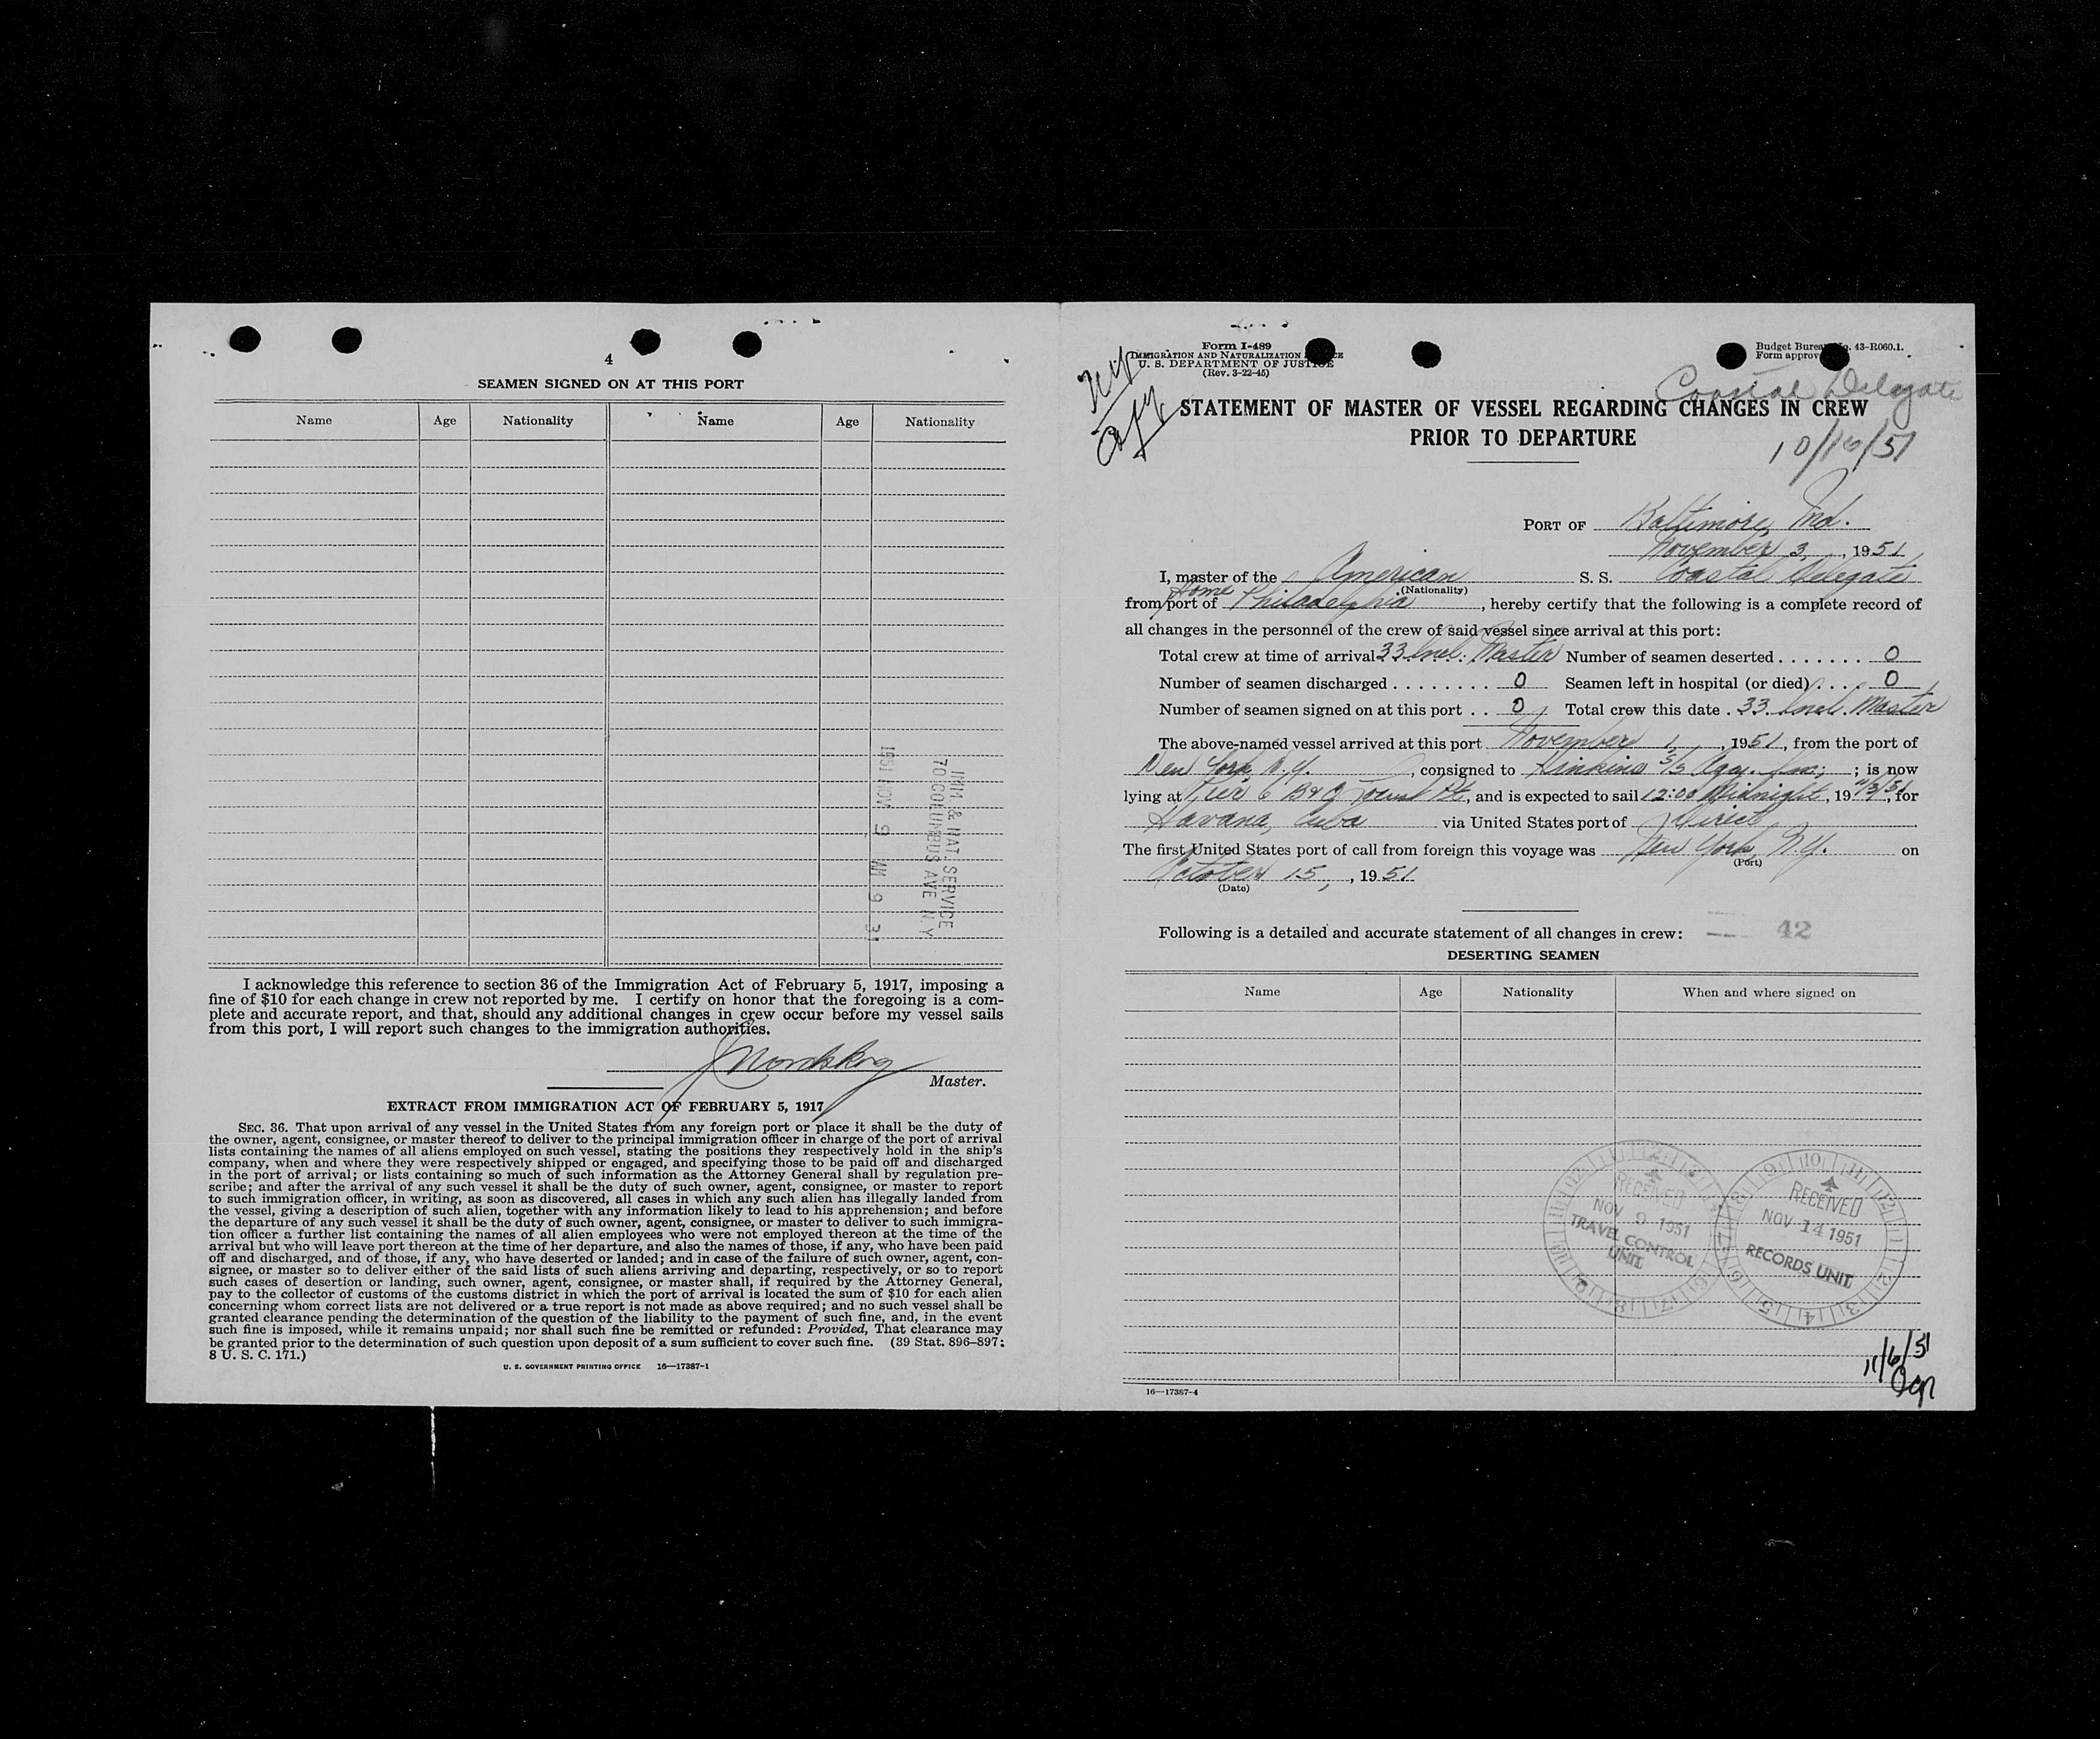 4
SEAMEN SIGNED ON AT THIS PORT
Name Age Nationality Name Age Nationality
IMM. & NAT. SERVICE
70 COLUMBUS AVE N.Y.
1951 NOV 9 AM 9 31
I acknowledge this reference to section 36 of the Immigration Act of February 5, 1917, imposing a
fine of $10 for each change in crew not reported by me. I certify on honor that the foregoing is a com-
plete and accurate report, and that, should any additional changes in crew occur before my vessel sails
from this port, I will report such changes to the immigration authorities.
Master.
EXTRACT FROM IMMIGRATION ACT OF FEBRUARY 5, 1917
SEC. 36. That upon arrival of any vessel in the United States from any foreign port or place it shall be the duty of
the owner, agent, consignee, or master thereof to deliver to the principal immigration officer in charge of the port of arrival
lists containing the names of all aliens employed on such vessel, stating the positions they respectively hold in the ship's
company, when and where they were respectively shipped or engaged, and specifying those to be paid off and discharged
in the port of arrival; or lists containing so much of such information as the Attorney General shall by regulation pre-
scribe; and after the arrival of any such vessel it shall be the duty of such owner, agent, consignee, or master to report
to such immigration officer, in writing, as soon as discovered, all cases in which any such alien has illegally landed from
the vessel, giving a description of such alien, together with any information likely to lead to his apprehension; and before
the departure of any such vessel it shall be the duty of such owner, agent, consignee, or master to deliver to such immigra-
tion officer a further list containing the names of all alien employees who were not employed thereon at the time of the
arrival but who will leave port thereon at the time of her departure, and also the names of those, if any, who have been paid
off and discharged, and of those, if any, who have deserted or landed; and in case of the failure of such owner, agent, con-
signee, or master so to deliver either of the said lists of such aliens arriving and departing, respectively, or so to report
such cases of desertion or landing, such owner, agent, consignee, or master shall, if required by the Attorney General,
pay to the collector of customs of the customs district in which the port of arrival is located the sum of $10 for each alien
concerning whom correct lists are not delivered or a true report is not made as above required; and no such vessel shall be
granted clearance pending the determination of the question of the liability to the payment of such fine, and, in the event
such fine is imposed, while it remains unpaid; nor shall such fine be remitted or refunded: Provided, That clearance may
be granted prior to the determination of such question upon deposit of a sum sufficient to cover such fine. (39 Stat. 896-897;
8 U. S. C. 171.)
U. S. GOVERNMENT PRINTING OFFICE 16—17387-1
Form I-489
IMMIGRATION AND NATURALIZATION
U. S. DEPARTMENT OF JUSTICE
(Rev. 3-22-45)
Budget Bureau No. 43-R060.1.
Form approv
N.Y.
Copy
Coastal Delegate
STATEMENT OF MASTER OF VESSEL REGARDING CHANGES IN CREW
PRIOR TO DEPARTURE
10/16/51
PORT OF Baltimore, Md.
November 3, , 1951
I, master of the American S. S. Coastal Delegate
(Nationality)
from Home port of Philadelphia , hereby certify that the following is a complete record of
all changes in the personnel of the crew of said vessel since arrival at this port:
Total crew at time of arrival 33 Incl. Master Number of seamen deserted . . . . . . . 0
Number of seamen discharged . . . . . . . . 0 Seamen left in hospital (or died) . . . . 0
Number of seamen signed on at this port . . 0 Total crew this date . 33 Incl. Master
The above-named vessel arrived at this port November 1, , 1951, from the port of
New York, N.Y. , consigned to Hinkins S/S Agcy. Inc; ; is now
lying at Pier 6 B&O Locust Pt., and is expected to sail 12:00 Midnight, 19 11/3/51, for
Havana, Cuba via United States port of Direct
The first United States port of call from foreign this voyage was New York, N.Y. on
(Port)
October 15, , 1951
(Date)
Following is a detailed and accurate statement of all changes in crew: 42
DESERTING SEAMEN
Name Age Nationality When and where signed on
RECEIVED
NOV 9 1951
TRAVEL CONTROL
UNIT
RECEIVED
NOV 14 1951
RECORDS UNIT
11/6/51
16—17387-4